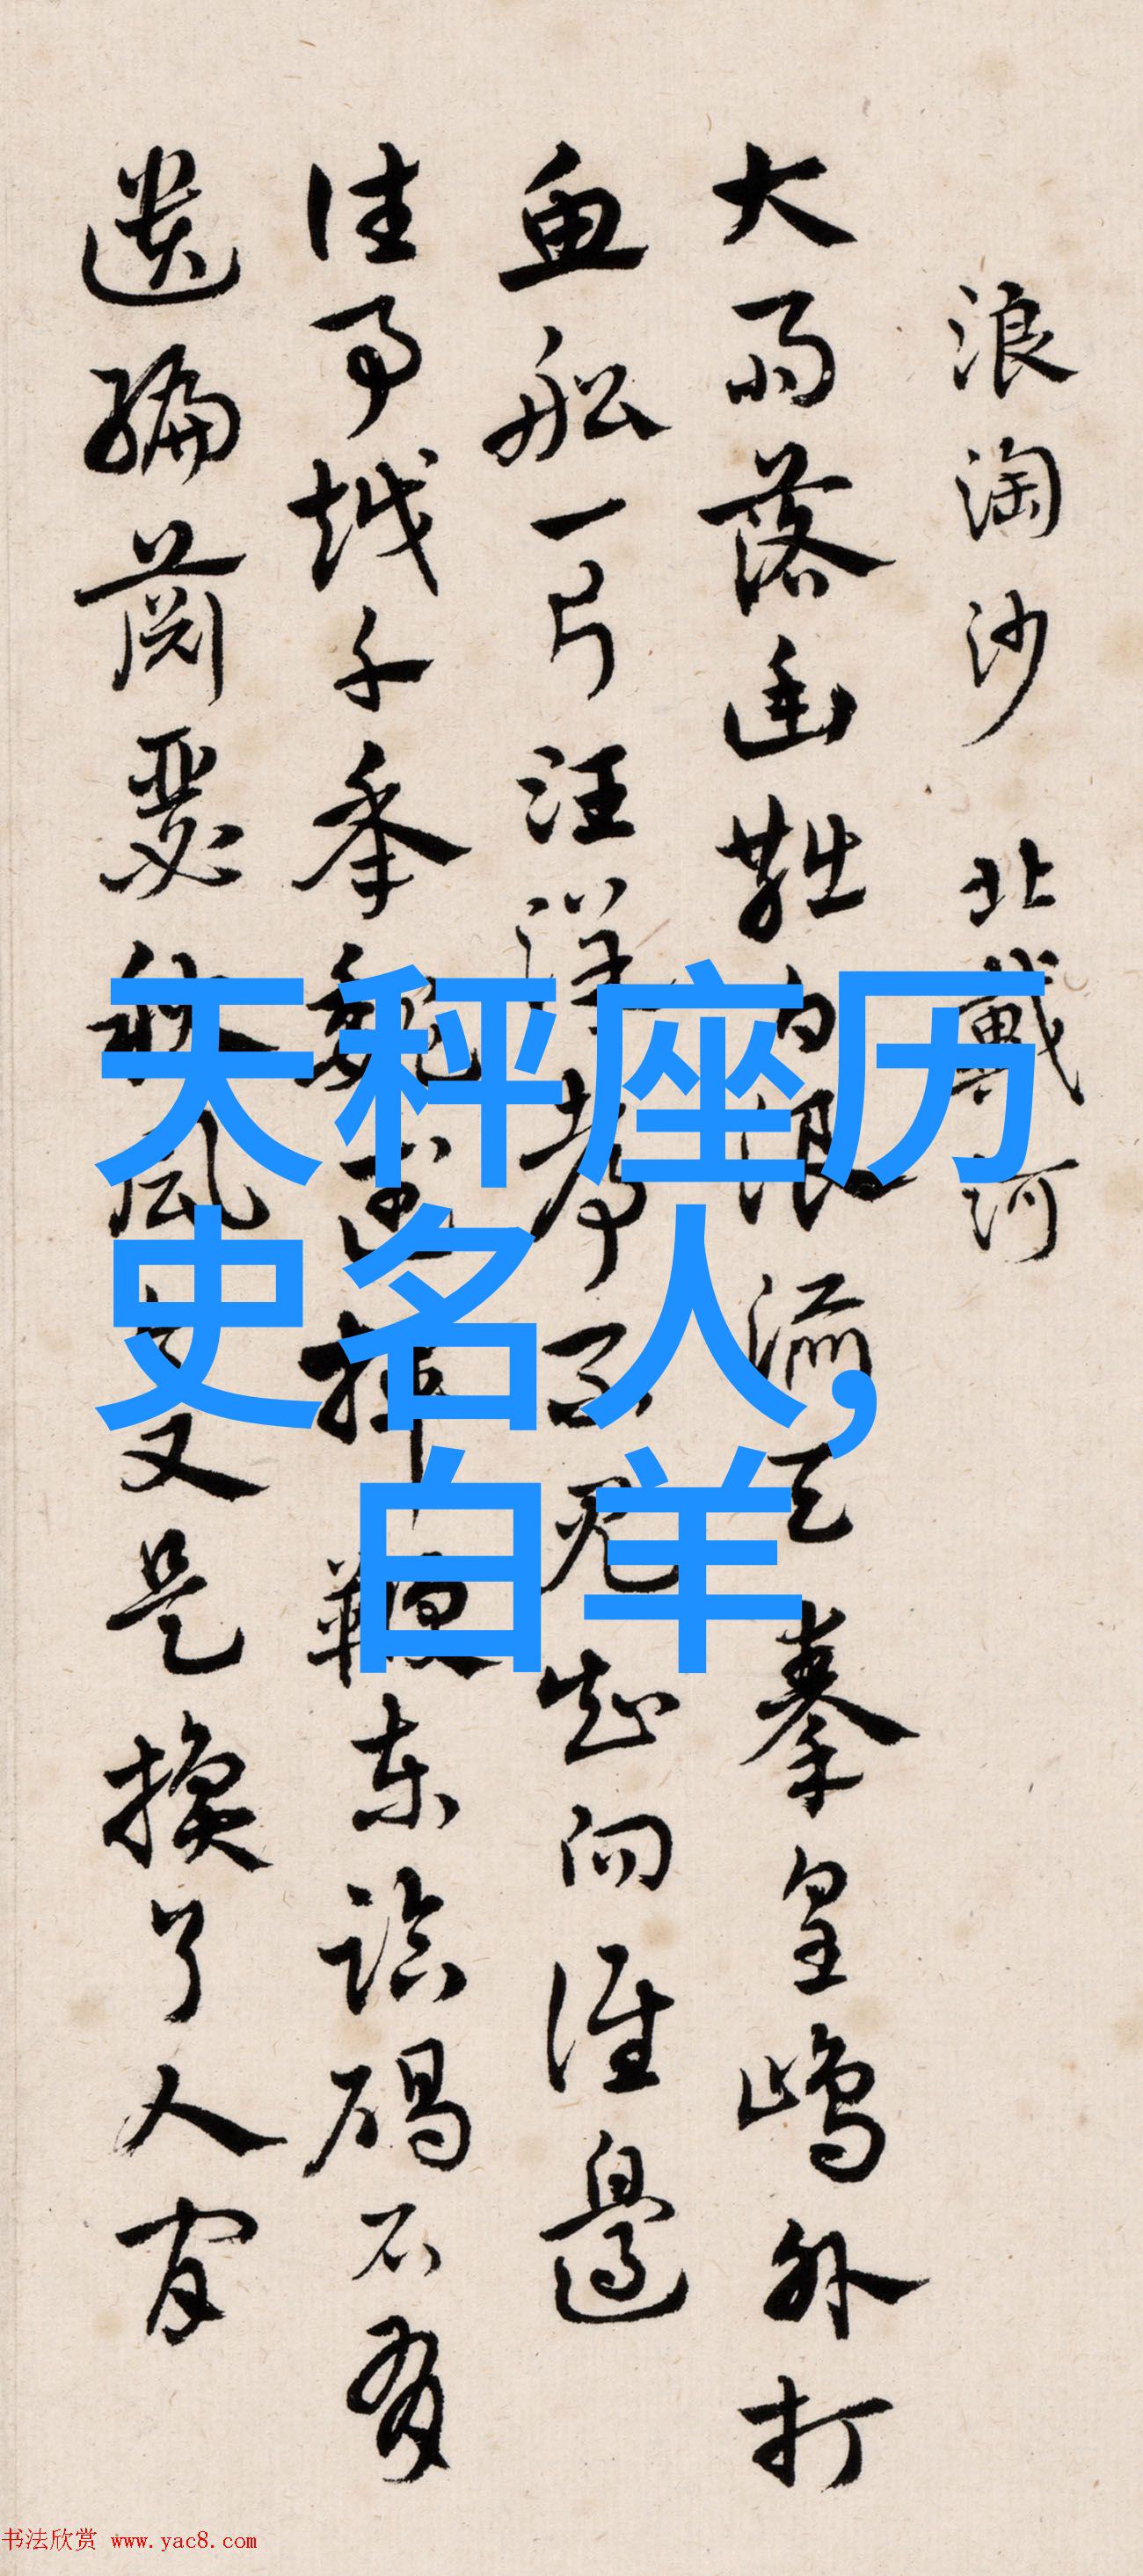 浪淘沙 北戴河
大雨落幽燕白浪滔天秦皇島外打
魚船一片汪洋都不見知向誰邊
往事越千年魏武揮鞭東臨碣石有
遺編蕭瑟秋風今又是換了人間
天秤座历
史名人,
白羊
书法欣赏 www.yac8.com